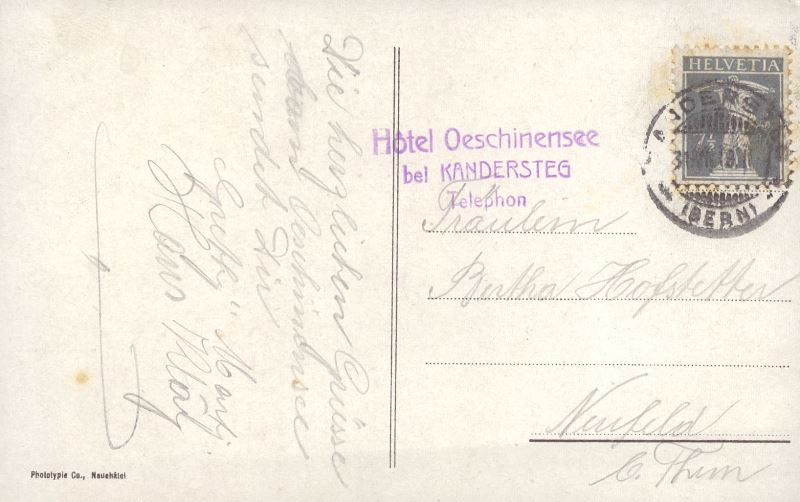 Die herzlichen Grüsse
Oeschinensee
sendet Dir
Hans
HELVETIA
7½
(BERN)
Hôtel Oeschinensee
bei KANDERSTEG
Telephon
Fräulein
Bertha Hofstetter
Neufeld
b. Thun
Phototypie Co., Neuchâtel